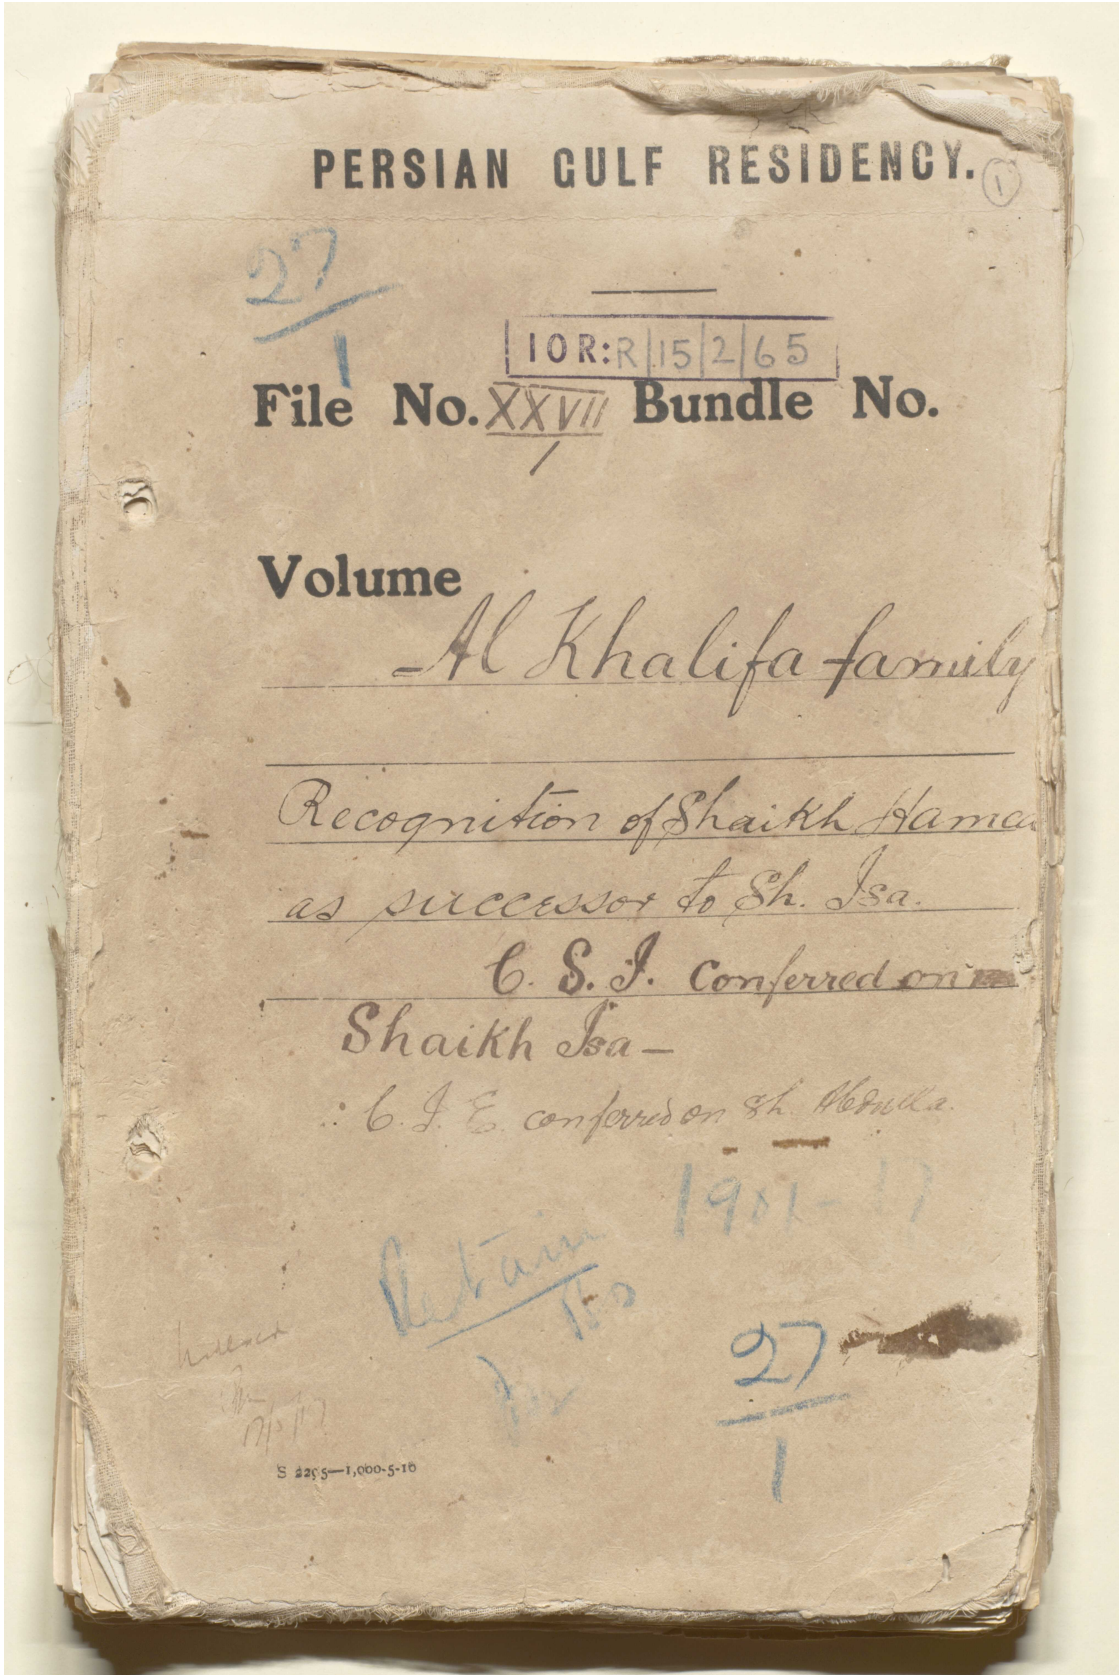 PERSIAN GULF RESIDENCY.
1
27
1
IOR:R/15/2/65
File No. XXVII Bundle No.
/
Volume
Al Khalifa family
Recognition of Shaikh Hamad
as successor to Sh. Isa.
C. S. I. conferred on
Shaikh Isa —
C. I. E. conferred on Sh. Abdulla.
1901-17
Retain
27
1
S 2295—1,000-5-16